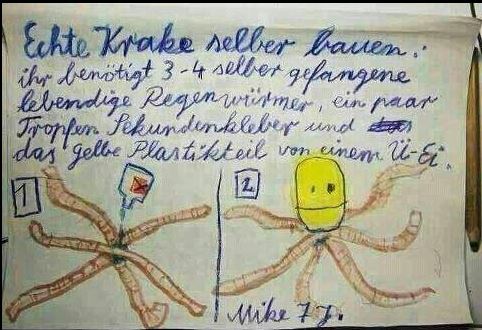 Echte Krake selber bauen:
ihr benötigt 3-4 selber gefangene
lebendige Regenwürmer, ein paar
Tropfen Sekundenkleber und
das gelbe Plastikteil von einem Ü-Ei.
1 2
Mike 7 J.